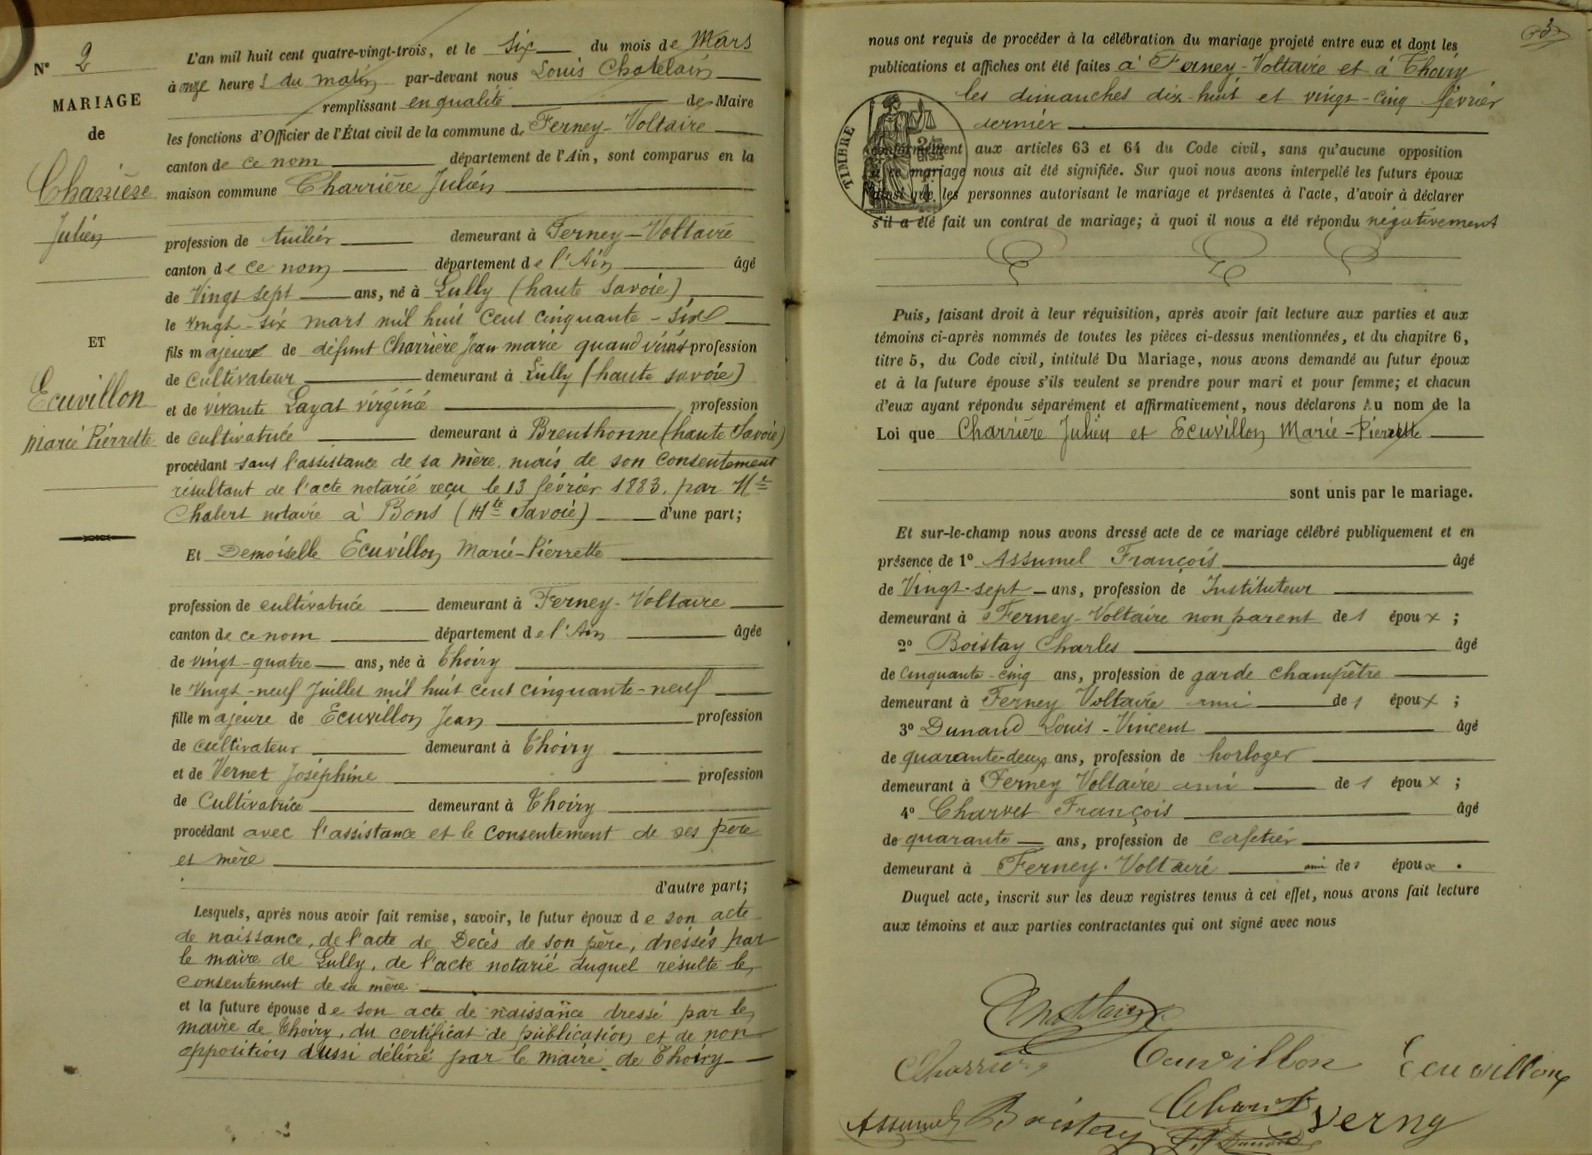 N° 2
MARIAGE
de
Charrière
Julien
ET
Ecuvillon
Marie Pierrette
L'an mil huit cent quatre-vingt-trois, et le six du mois de Mars
à onze heures du matin par-devant nous Louis Chatelain
remplissant en qualité de Maire
les fonctions d'Officier de l'État civil de la commune de Ferney-Voltaire
canton de ce nom département de l'Ain, sont comparus en la
maison commune Charrière Julien
profession de tuilier demeurant à Ferney-Voltaire
canton de ce nom département de l'Ain âgé
de Vingt sept ans, né à Lully (haute Savoie)
le vingt-six mars mil huit cent cinquante-six
fils majeur de défunt Charrière Jean marie quand vivait profession
de cultivateur demeurant à Lully (haute savoie)
et de vivante Layat virginie profession
de cultivatrice demeurant à Brenthonne (haute Savoie)
procédant sans l'assistance de sa mère, mais de son consentement
résultant de l'acte notarié reçu le 13 février 1883, par Me
Chabert notaire à Bons (Hte Savoie) d'une part;
Et Demoiselle Ecuvillon Marie-Pierrette
profession de cultivatrice demeurant à Ferney-Voltaire
canton de ce nom département de l'Ain âgée
de vingt-quatre ans, née à Thoiry
le Vingt-neuf Juillet mil huit cent cinquante-neuf
fille majeure de Ecuvillon Jean profession
de cultivateur demeurant à Thoiry
et de Vernet Joséphine profession
de Cultivatrice demeurant à Thoiry
procédant avec l'assistance et le consentement de ses père
et mère
d'autre part;
Lesquels, après nous avoir fait remise, savoir, le futur époux de son acte
de naissance, de l'acte de Décès de son père, dressés par
le maire de Lully, de l'acte notarié duquel résulte le
consentement de sa mère
et la future épouse de son acte de naissance dressé par le
maire de Thoiry, du certificat de publication et de non
opposition aussi délivré par le maire de Thoiry
nous ont requis de procéder à la célébration du mariage projeté entre eux et dont les
publications et affiches ont été faites à Ferney-Voltaire et à Thoiry
les dimanches dix-huit et vingt-cinq février
dernier
TIMBRE
conformément aux articles 63 et 64 du Code civil, sans qu'aucune opposition
à ce mariage nous ait été signifiée. Sur quoi nous avons interpellé les futurs époux
ainsi que les personnes autorisant le mariage et présentes à l'acte, d'avoir à déclarer
s'il a été fait un contrat de mariage; à quoi il nous a été répondu négativement
Puis, faisant droit à leur réquisition, après avoir fait lecture aux parties et aux
témoins ci-après nommés de toutes les pièces ci-dessus mentionnées, et du chapitre 6,
titre 5, du Code civil, intitulé Du Mariage, nous avons demandé au futur époux
et à la future épouse s'ils veulent se prendre pour mari et pour femme; et chacun
d'eux ayant répondu séparément et affirmativement, nous déclarons Au nom de la
Loi que Charrière Julien et Ecuvillon Marie-Pierrette
sont unis par le mariage.
Et sur-le-champ nous avons dressé acte de ce mariage célébré publiquement et en
présence de 1° Assumel François âgé
de Vingt-sept ans, profession de Instituteur
demeurant à Ferney-Voltaire non parent des époux ;
2° Boistay Charles âgé
de cinquante-cinq ans, profession de garde champêtre
demeurant à Ferney Voltaire ami des époux ;
3° Dunand Louis-Vincent âgé
de quarante-deux ans, profession de horloger
demeurant à Ferney Voltaire ami des époux ;
4° Charvet François âgé
de quarante ans, profession de cafetier
demeurant à Ferney-Voltaire ami des époux .
Duquel acte, inscrit sur les deux registres tenus à cet effet, nous avons fait lecture
aux témoins et aux parties contractantes qui ont signé avec nous
Charrière Ecuvillon Ecuvillon
Assumel Boistay Charvet Verny